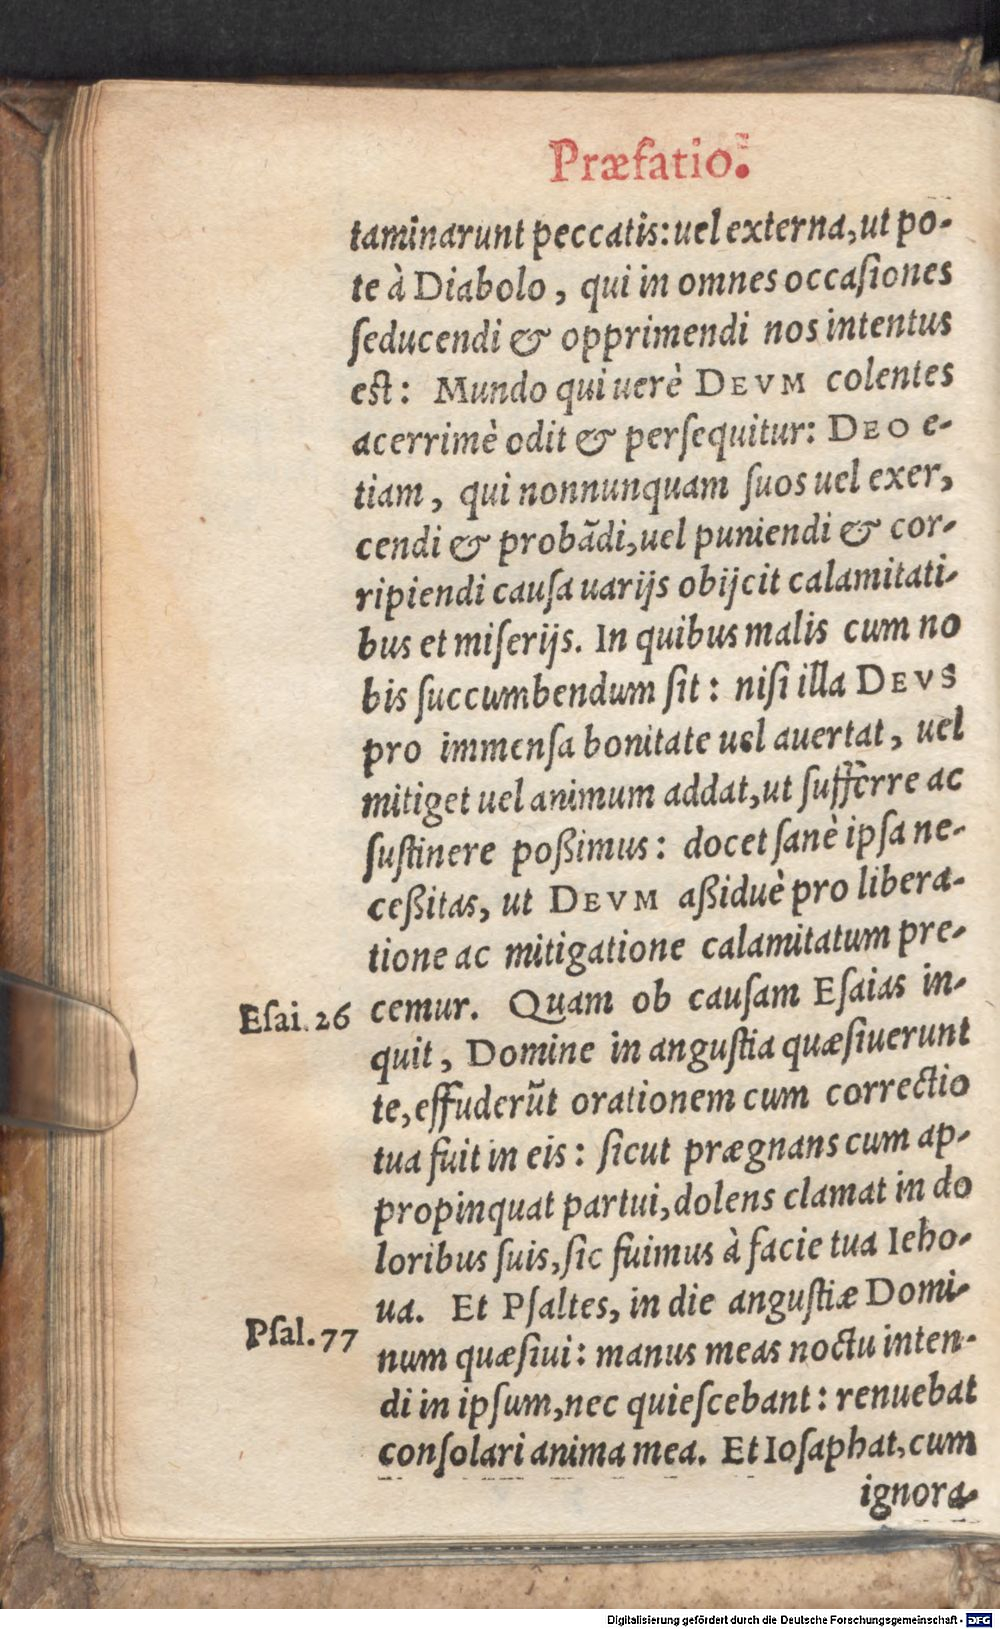 Præfatio.
taminarunt peccatis: uel externa, ut po-
te à Diabolo, qui in omnes occaſiones
ſeducendi & opprimendi nos intentus
est: Mundo qui uerè DEVM colentes
acerrimè odit & perſequitur: DEO e-
tiam, qui nonnunquam ſuos uel exer,
cendi & probãdi, uel puniendi & cor-
ripiendi cauſa uarijs obijcit calamitati-
bus et miſerijs. In quibus malis cum no
bis ſuccumbendum ſit: niſi illa DEVS
pro immenſa bonitate uel auertat, uel
mitiget uel animum addat, ut ſufferre ac
ſuſtinere poßimus: docet ſanè ipſa ne-
ceßitas, ut DEVM aßiduè pro libera-
tione ac mitigatione calamitatum pre-
Eſai. 26 cemur. Quam ob cauſam Eſaias in-
quit, Domine in anguſtia quæſiuerunt
te, effuderũt orationem cum correctio
tua fuit in eis: ſicut prægnans cum ap-
propinquat partui, dolens clamat in do
loribus ſuis, ſic fuimus à facie tua Ieho-
ua. Et Pſaltes, in die anguſtiæ Domi-
Pſal. 77 num quæſiui: manus meas noctu inten-
di in ipſum, nec quieſcebant: renuebat
conſolari anima mea. Et Ioſaphat, cum
ignora-
Digitalisierung gefördert durch die Deutsche Forschungsgemeinschaft - DFG